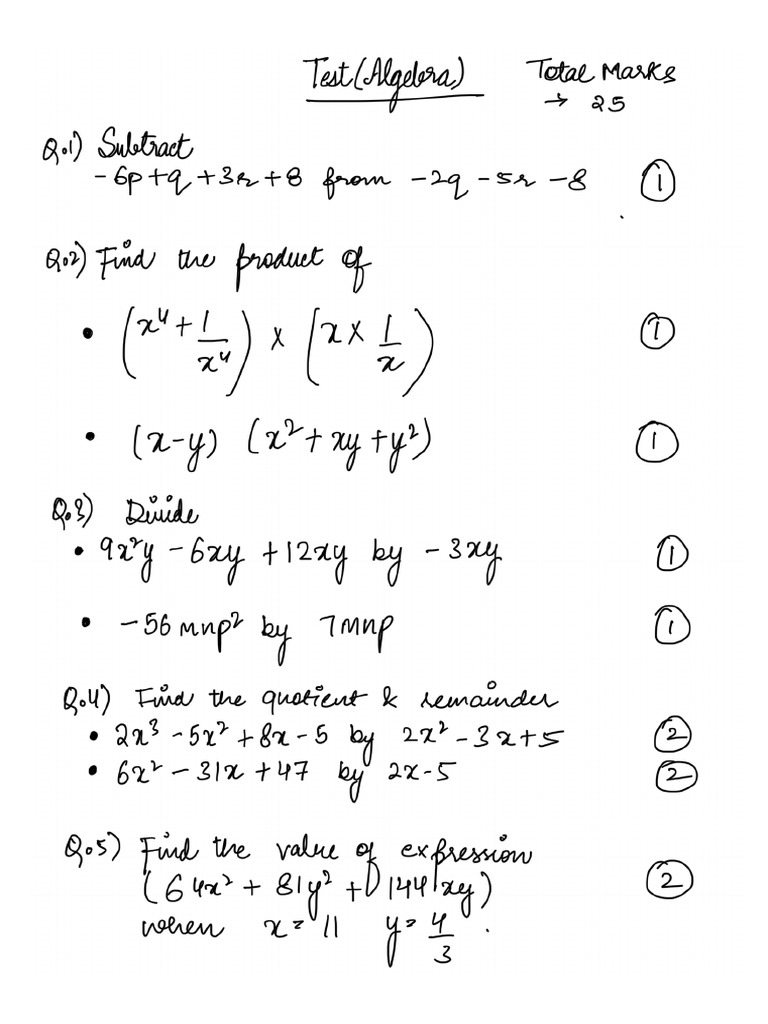 Test (Algebra) Total Marks
→ 25
Q.1) Subtract
-6p+q+3r+8 from -2q-5r-8 ①
Q.2) Find the product of
• (x⁴ + 1/x⁴) × (x × 1/x) ①
• (x-y) (x²+xy+y²) ①
Q.3) Divide
• 9x²y - 6xy + 12xy by - 3xy ①
• -56 mnp² by 7mnp ①
Q.4) Find the quotient & remainder
• 2x³ - 5x² + 8x - 5 by 2x² - 3x + 5 ②
• 6x² - 31x + 47 by 2x-5 ②
Q.5) Find the value of expression
(64x² + 81y² + 144xy) ②
when x = 11 y = 4/3 .